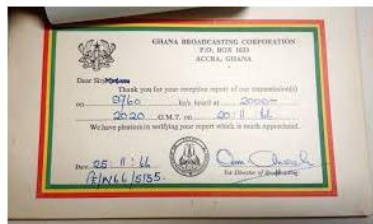 GHANA BROADCASTING CORPORATION
P.O. BOX 1633
ACCRA, GHANA
Dear Sir/Madam
Thank you for your reception report of our transmission(s)
on 9760 kc/s heard at 2000–
2020 G.M.T. on 20:11:66
We have pleasure in verifying your report which is much appreciated.
Date 25:11:66
for Director of